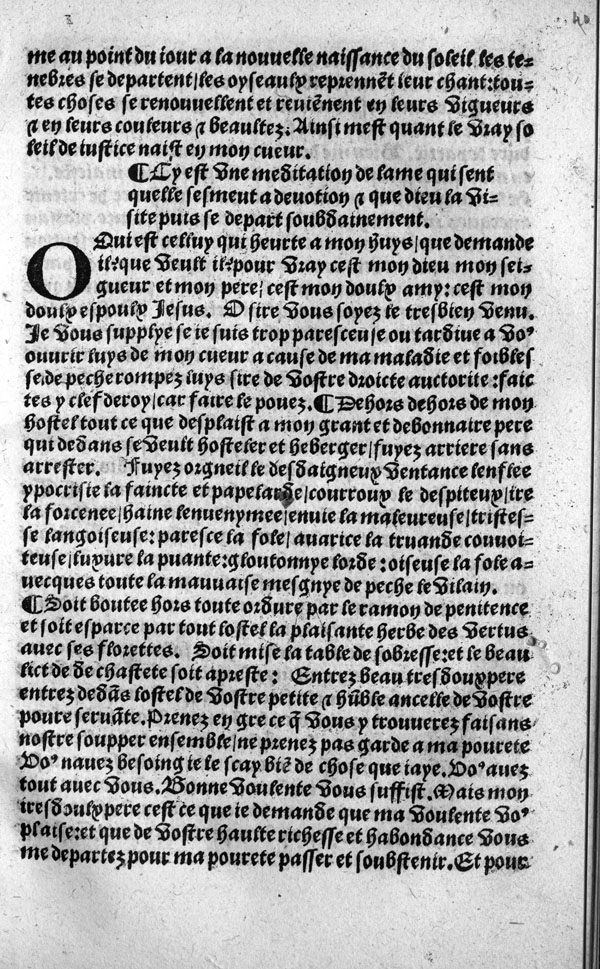 40
me au point du iour a la nouuelle naissance du soleil les te-
nebres se departent/les oyseaulx reprennēt leur chant:tou-
tes choses se renouuellent et reuiēnent en leurs vigueurs
⁊ en leurs couleurs ⁊ beaultez. Ainsi mest quant le vray so
leil de iustice naist en mon cueur.
¶Cy est vne meditation de lame qui sent
quelle sesmeut a deuotion ⁊ que dieu la vi-
site puis se depart soubdainement.
OQui est celluy qui heurte a mon huys/que demande
il:que veult il:pour vray cest mon dieu mon sei-
gueur et mon pere/cest mon doulx amy:cest mon
doulx espoulx Jesus. O sire vous soyez le tresbien venu.
Je vous supplye se ie suis trop paresceuse ou tardiue a voꝰ
ouurir luys de mon cueur a cause de ma maladie et foibles
se.de peche rompez luys sire de vostre droicte auctorite:faic
tes y clef deroy/car faire le pouez.¶Dehors dehors de mon
hostel tout ce que desplaist a mon grant et debonnaire pere
qui dedans se veult hosteler et heberger/fuyez arriere sans
arrester. Fuyez orgueil le desdaigneux ventance lenflee
ypocrisie la faincte et papelarde/courroux le despiteux/ire
la forcenee/haine lenuenymee/enuie la maleureuse/tristes-
se langoiseuse:paresca la fole/auarice la truande couuoi-
teuse/luxure la puante:gloutonnye lorde:oiseuse la fole a-
uecques toute la mauuaise mesgnye de peche le vilain.
¶Soit boutee hors toute ordure par le ramon de penitence
et soit esparce par tout lostel la plaisante herbe des vertus
auec ses florettes. Soit mise la table de sobresse:et le beau
lict de de chastete soit apreste: Entrez beau tresdoux pere
entrez dedās lostel de vostre petite ⁊ hūble ancelle de vostre
poure seruāte.Prenez en gre ce q̄ vous y trouuerez faisans
nostre soupper ensemble/ne prenez pas garde a ma pourete
voꝰ nauez besoing ie le scay biē de chose que iaye.voꝰ auez
tout auec vous.Bonne voulente vous suffist.Mais mon
tresdoulx pere cest ce que ie demande que ma voulente voꝰ
plaise:et que de vostre haulte richesse et habondance vous
me departez pour ma pourete passer et soubstenir.Et pour